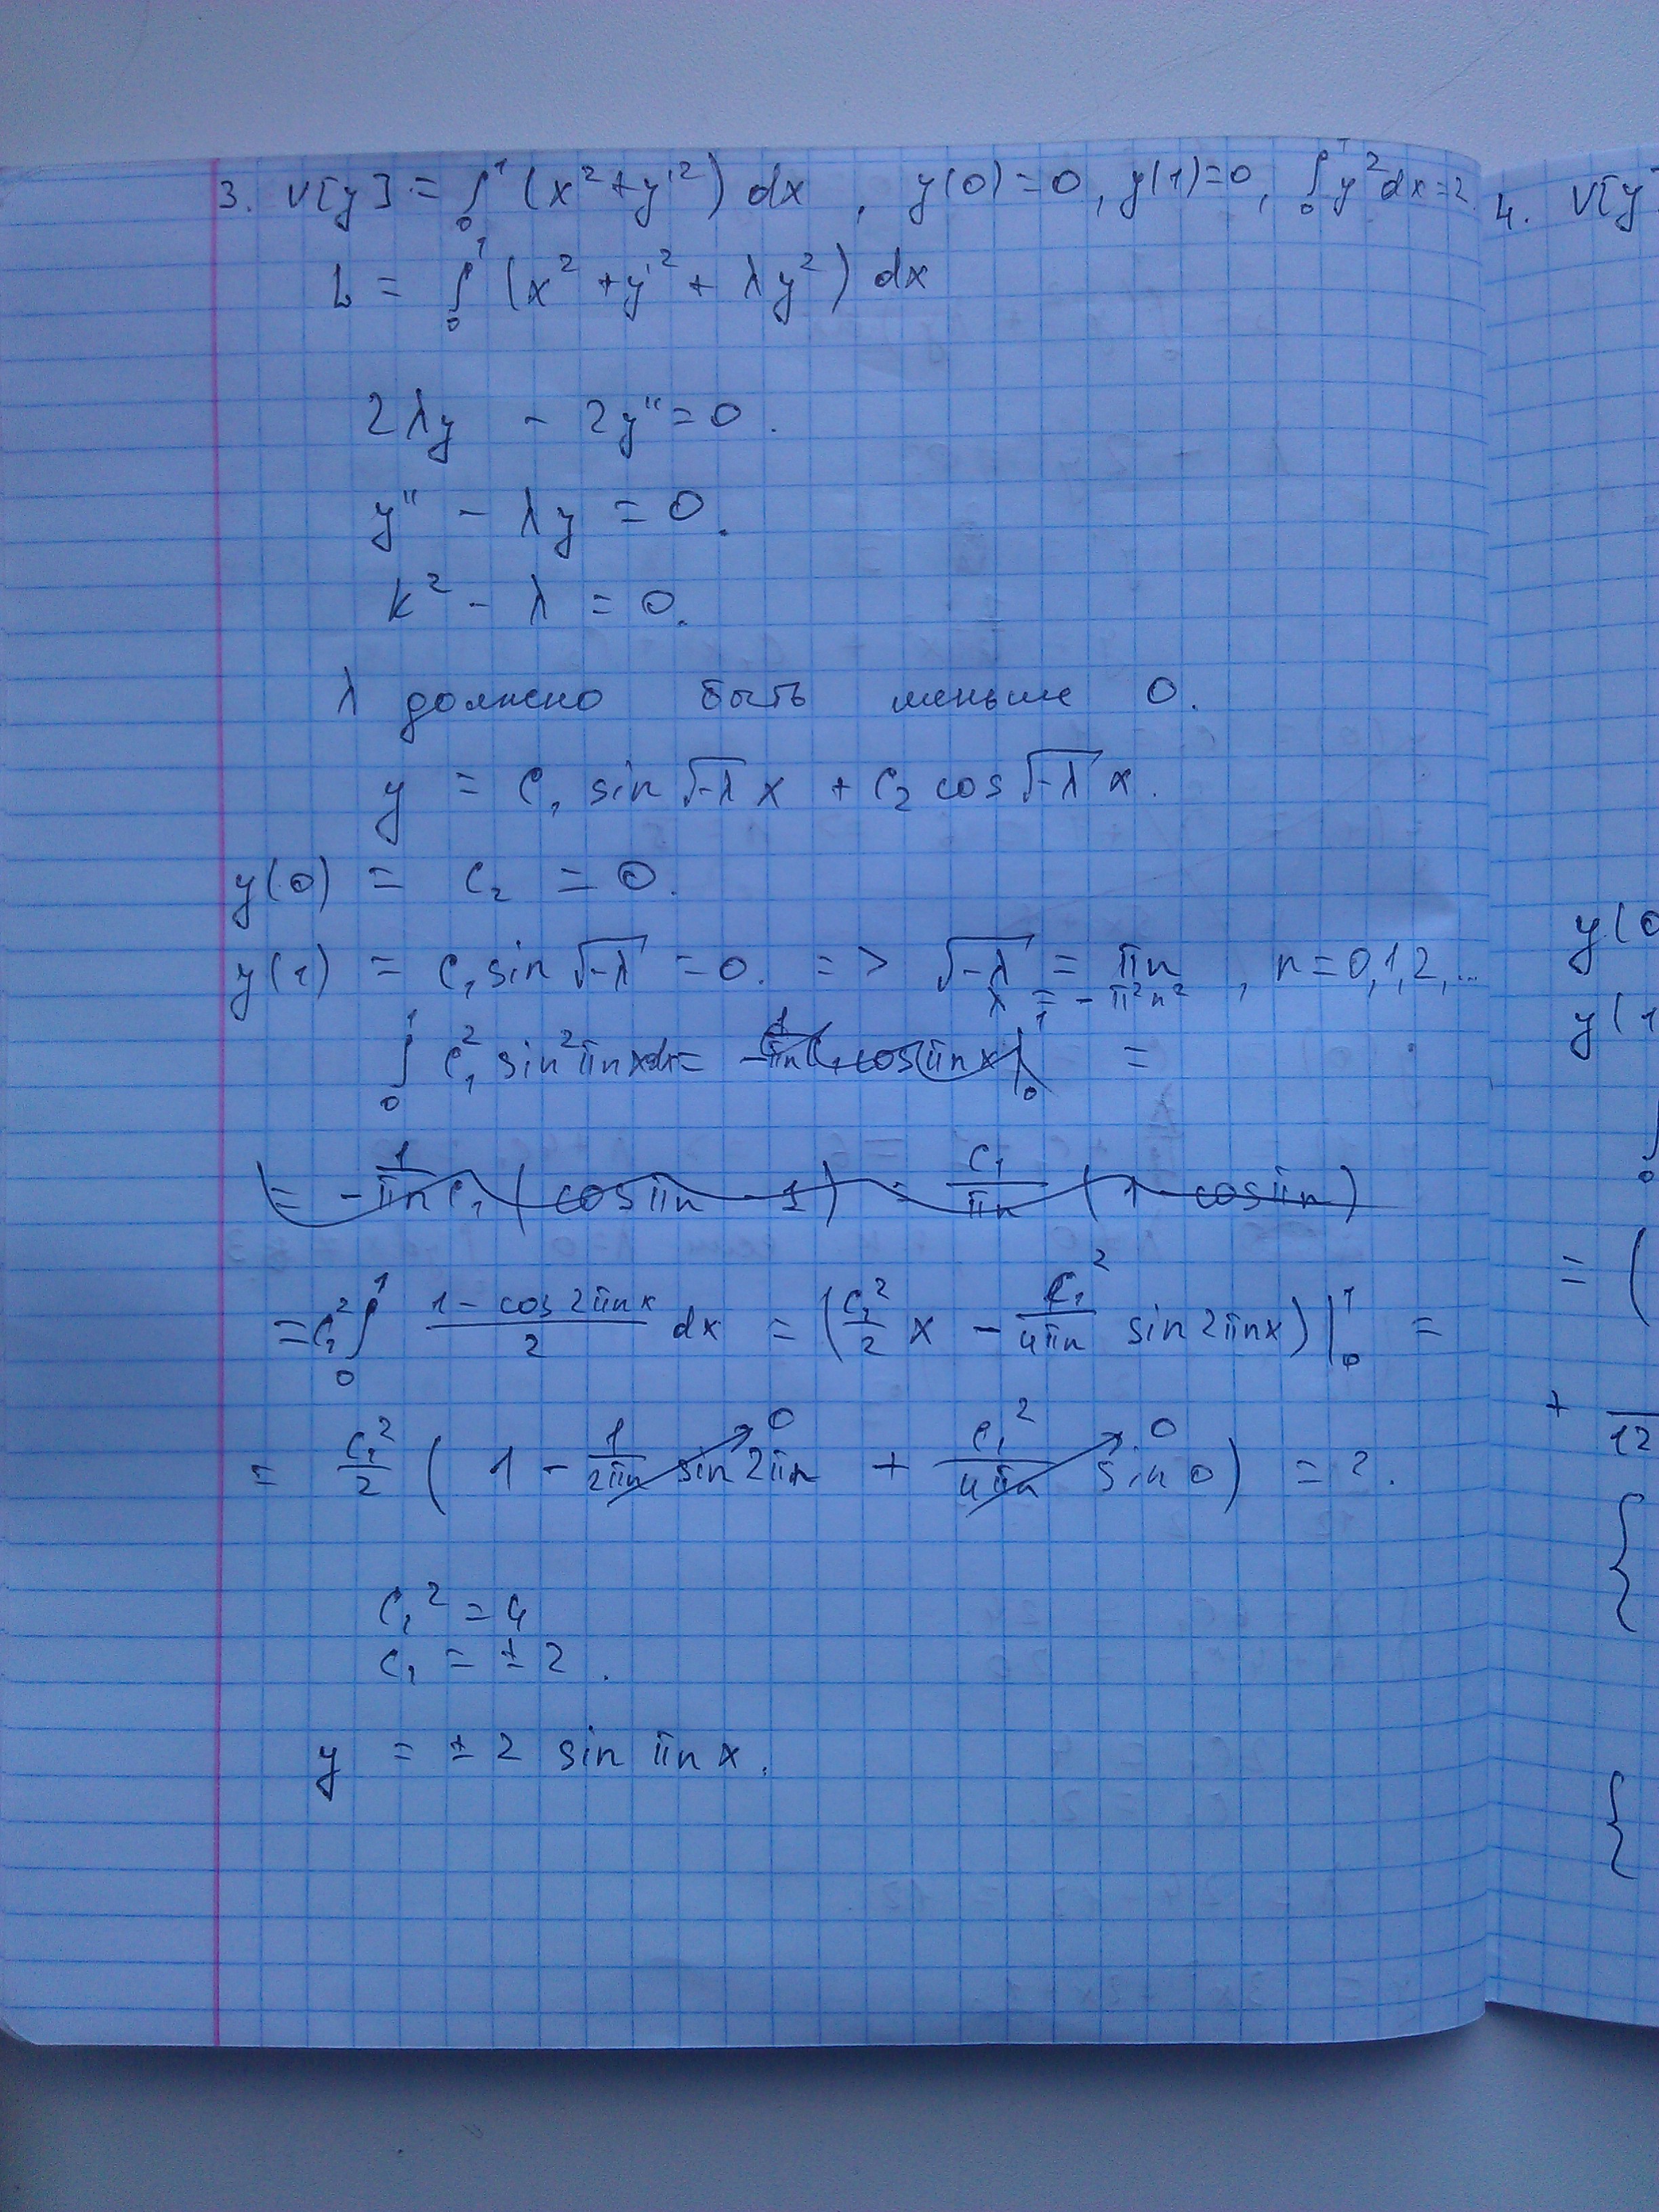 3. V[y] = ∫₀¹ (x² + y'²) dx , y(0) = 0, y(1) = 0, ∫₀¹ y² dx = 2.
L = ∫₀¹ (x² + y'² + λy²) dx
2λy - 2y'' = 0.
y'' - λy = 0.
k² - λ = 0.
λ должно быть меньше 0.
y = C₁ sin √-λ x + C₂ cos √-λ x.
y(0) = C₂ = 0.
y(1) = C₁ sin √-λ = 0. => √-λ = πn , n = 0,1,2,...
λ = - π²n²
∫₀¹ C₁² sin² πnx dx = - 1/πn C₁ cos πnx |₀¹ =
= - 1/πn C₁ ( cos πn - 1 ) = C₁/πn ( 1 - cos πn )
= C₁² ∫₀¹ (1 - cos 2πnx)/2 dx = ( C₁²/2 x - C₁²/4πn sin 2πnx ) |₀¹ =
= C₁²/2 ( 1 - 1/2πn sin 2πn → 0 + C₁²/4πn sin 0 → 0 ) = 2.
C₁² = 4
C₁ = ± 2 .
y = ± 2 sin πnx.
4. V[y
y(0
y(1
∫₀
= (
+ 12
{
{